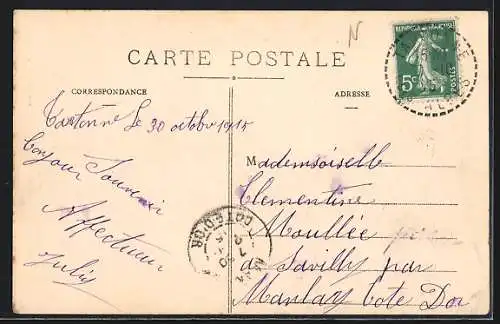 N
CARTE POSTALE
CORRESPONDANCE
ADRESSE
RÉPUBLIQUE FRANÇAISE
5c
POSTES
le 30 octobre 1915
Bonjour Souvenir
Affectueux
Mademoiselle
Clementine
Moullée
a Savilly par
Manlay Cote Dor
COTE-D'OR